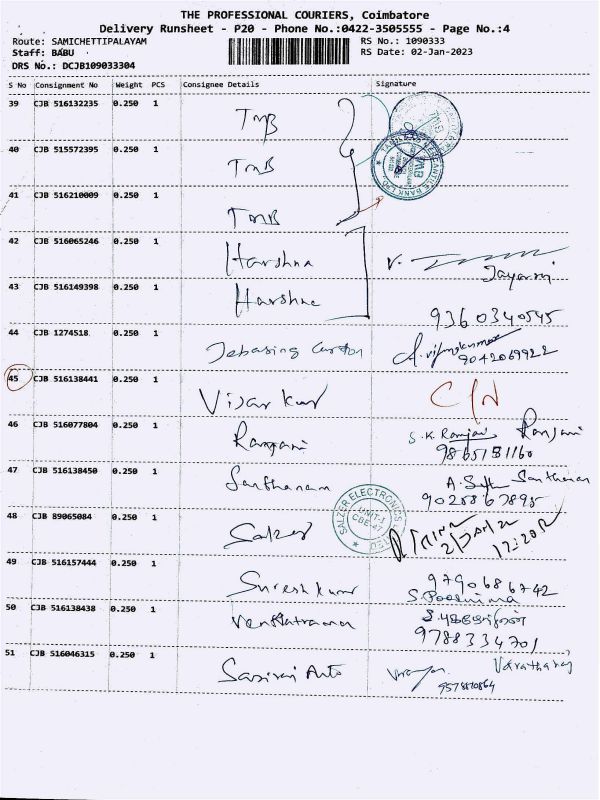 THE PROFESSIONAL COURIERS, Coimbatore
Delivery Runsheet - P20 - Phone No.:0422-3505555 - Page No.:4
Route: SAMICHETTIPALAYAM
RS No.: 1090333
Staff: BABU
RS Date: 02-Jan-2023
DRS No.: DCJB109033304
S No Consignment No Weight PCS Consignee Details Signature
39 CJB 516132235 0.250 1 TMB
40 CJB 515572395 0.250 1 TMB
TAMILNAD MERCANTILE BANK LTD.
TMB
41 CJB 516210009 0.250 1 TMB
42 CJB 516065246 0.250 1 Harshna V.
Jayarri
43 CJB 516149398 0.250 1 Harshne
9360340545
44 CJB 1274518 0.250 1 Jebasing Carton A. vijaykumar
9042069922
45 CJB 516138441 0.250 1 Vijay kur C/N
46 CJB 516077804 0.250 1 Ranjani S.K. Ranjani Ranjani
9865151160
47 CJB 516138450 0.250 1 Santhanam A. Santhanam
9025867895
SALZER ELECTRONICS LTD
UNIT-1
CBE-47
48 CJB 89065084 0.250 1 Salzer
12:20
49 CJB 516157444 0.250 1 Sureshkumar 9790686742
S. Poornima
50 CJB 516138438 0.250 1 Venkatraman
9788334701
51 CJB 516046315 0.250 1 Sasirai Auto Varatharaj
9578810864